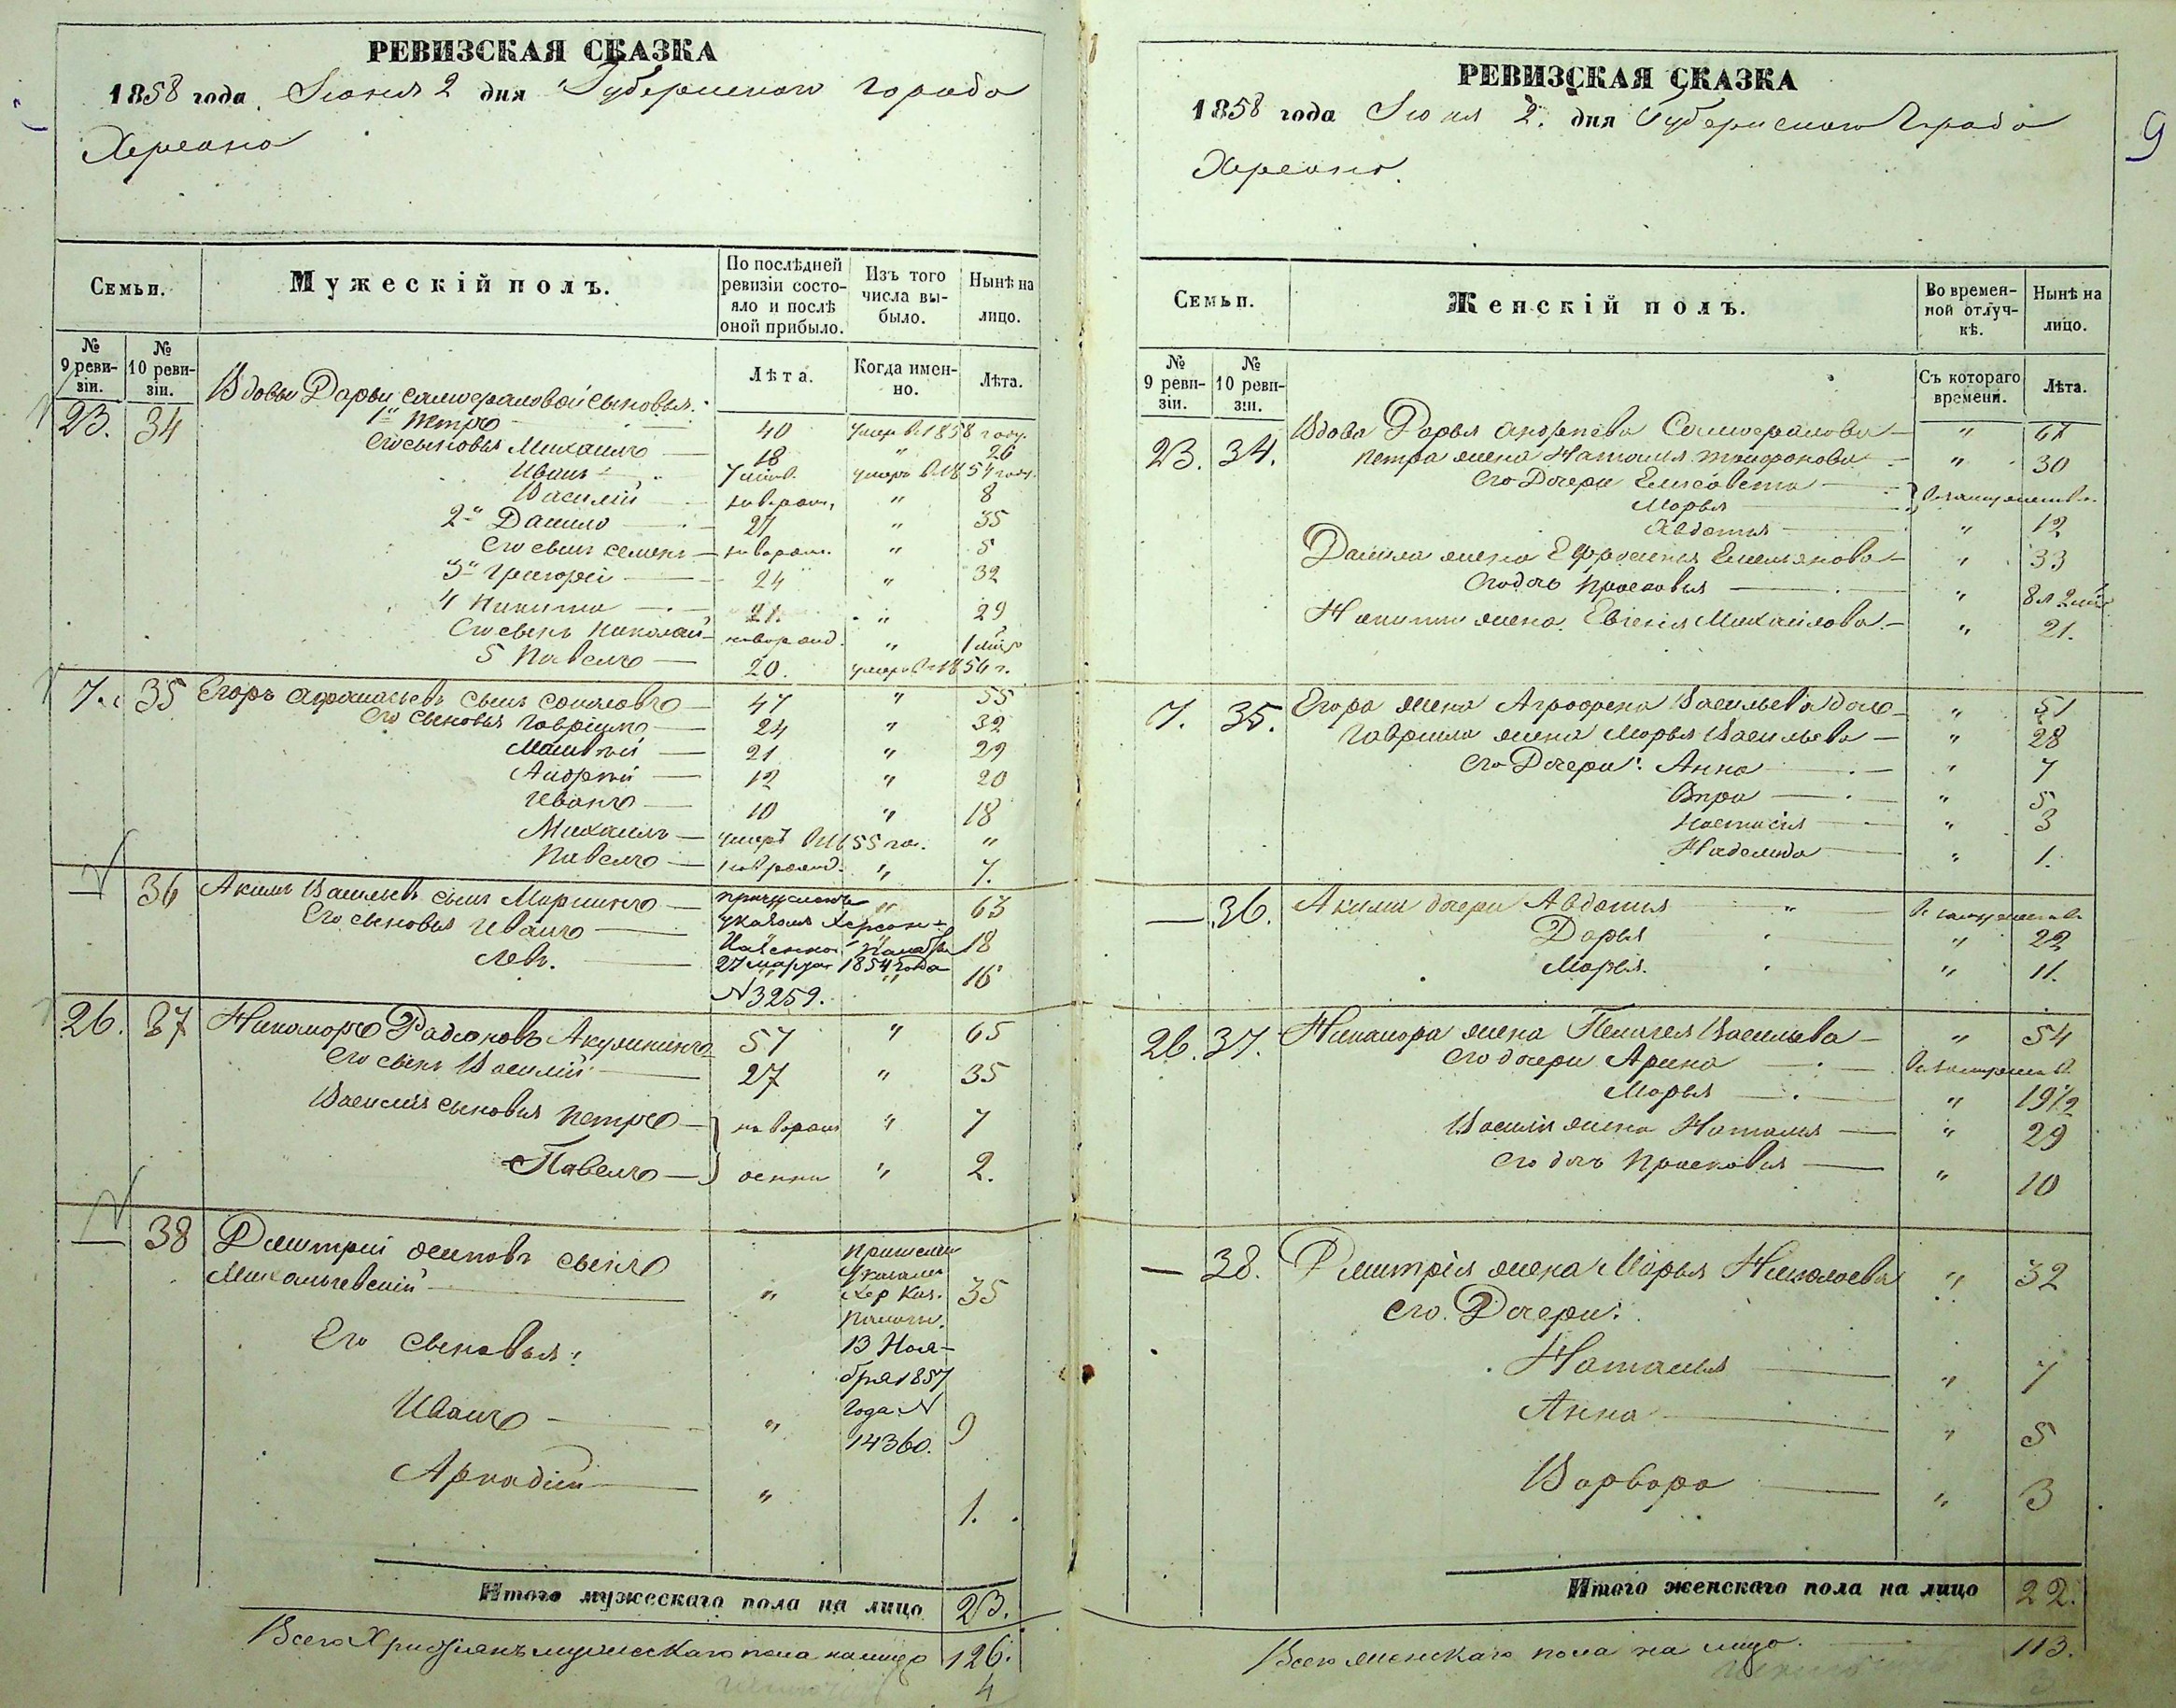 РЕВИЗСКАЯ СКАЗКА
1858 года Июня 2 дня Губернскаго города
Херсона
Семьи.
Мужескій полъ.
По послѣдней ревизіи состояло и послѣ оной прибыло.
Изъ того числа выбыло.
Нынѣ на лицо.
№ 9 ревизіи.
№ 10 ревизіи.
Лѣта.
Когда именно.
Лѣта.
23. 34 Вдовы Дарьи сыновья:
1й Петръ 40 умеръ въ 1858 году
его сыновья Михаилъ 18 " 26
Иванъ 7 умеръ въ 1854 году
Василій новорожд. " 8
2й Данило 27 " 35
его сынъ Семенъ новорожд. " 5
3й Григорій 24 " 32
4 Никита 21. " 29
его сынъ Николай новорожд. " 1
5 Павелъ 20. умеръ въ 1856 г.
7. 35 Егоръ Афанасьевъ сынъ 47 " 55
его сыновья Гавріилъ 24 " 32
Матвей 21 " 29
Андрей 12 " 20
Иванъ 10 " 18
Михаилъ умеръ въ 1855 го. "
Павелъ новорожд. " 7.
— 36 Акимъ Васильевъ сынъ причисленъ " 63
его сыновья Иванъ указомъ Херсон= 18
Левъ. Палаты 27 марта 1854 года 16
№ 3259.
26. 37 Никаноръ Радионовъ Акулининъ 57 " 65
его сынъ Василий 27 " 35
Василия сыновья Петръ новорож " 7
Павелъ денни " 2.
— 38 Дмитрий Осиповъ сынъ
Михальчевский " 35
указом
Хер Каз.
Палаты.
13 Ноя-
бря 1857
года №
14360.
Его сыновья:
Иванъ " 9
Аркадій " 1.
Итого мужескаго пола на лицо 23.
Всего Христіянъ мужескаго пола налицо 126.
4
РЕВИЗСКАЯ СКАЗКА
1858 года Июня 2. дня Губернскаго Города
Херсона.
9
Семьи.
Женскій полъ.
Во временной отлучкѣ.
Нынѣ на лицо.
№ 9 ревизіи.
№ 10 ревизіи.
Съ котораго времени.
Лѣта.
23. 34. Вдова Дарья Андреева "
Петра жена Наталья " 30
его Дочери Елисавета
Марья въ замужестве.
Авдотья " 12
Данила жена Ефросинья Емельянова " 33
его дочь Прасковья " 8
Никиты жена Евгенія Михайлова " 21.
7. 35. Егора жена Агрофена Васильева дочь " 51
Гавриила жена Марья Васильева " 28
его Дочери: Анна " 7
Вера " 5
Настасия " 3
Надежда " 1.
— 36. Акима дочери Авдотья в замужестве
Дарья " 22
Марья. " 11.
26. 37. Никанора жена Пелагея Васильева " 54
его дочери Арина в замужестве
Марья " 19 1/2
Василия жена Наталья " 29
его дочь Прасковья " 10
— 38. Дмитрія жена Марья Николаева " 32
его Дочери:
Наталья " 7
Анна " 5
Варвара " 3
Итого женскаго пола на лицо 22.
Всего женскаго пола на лицо. 113.
3